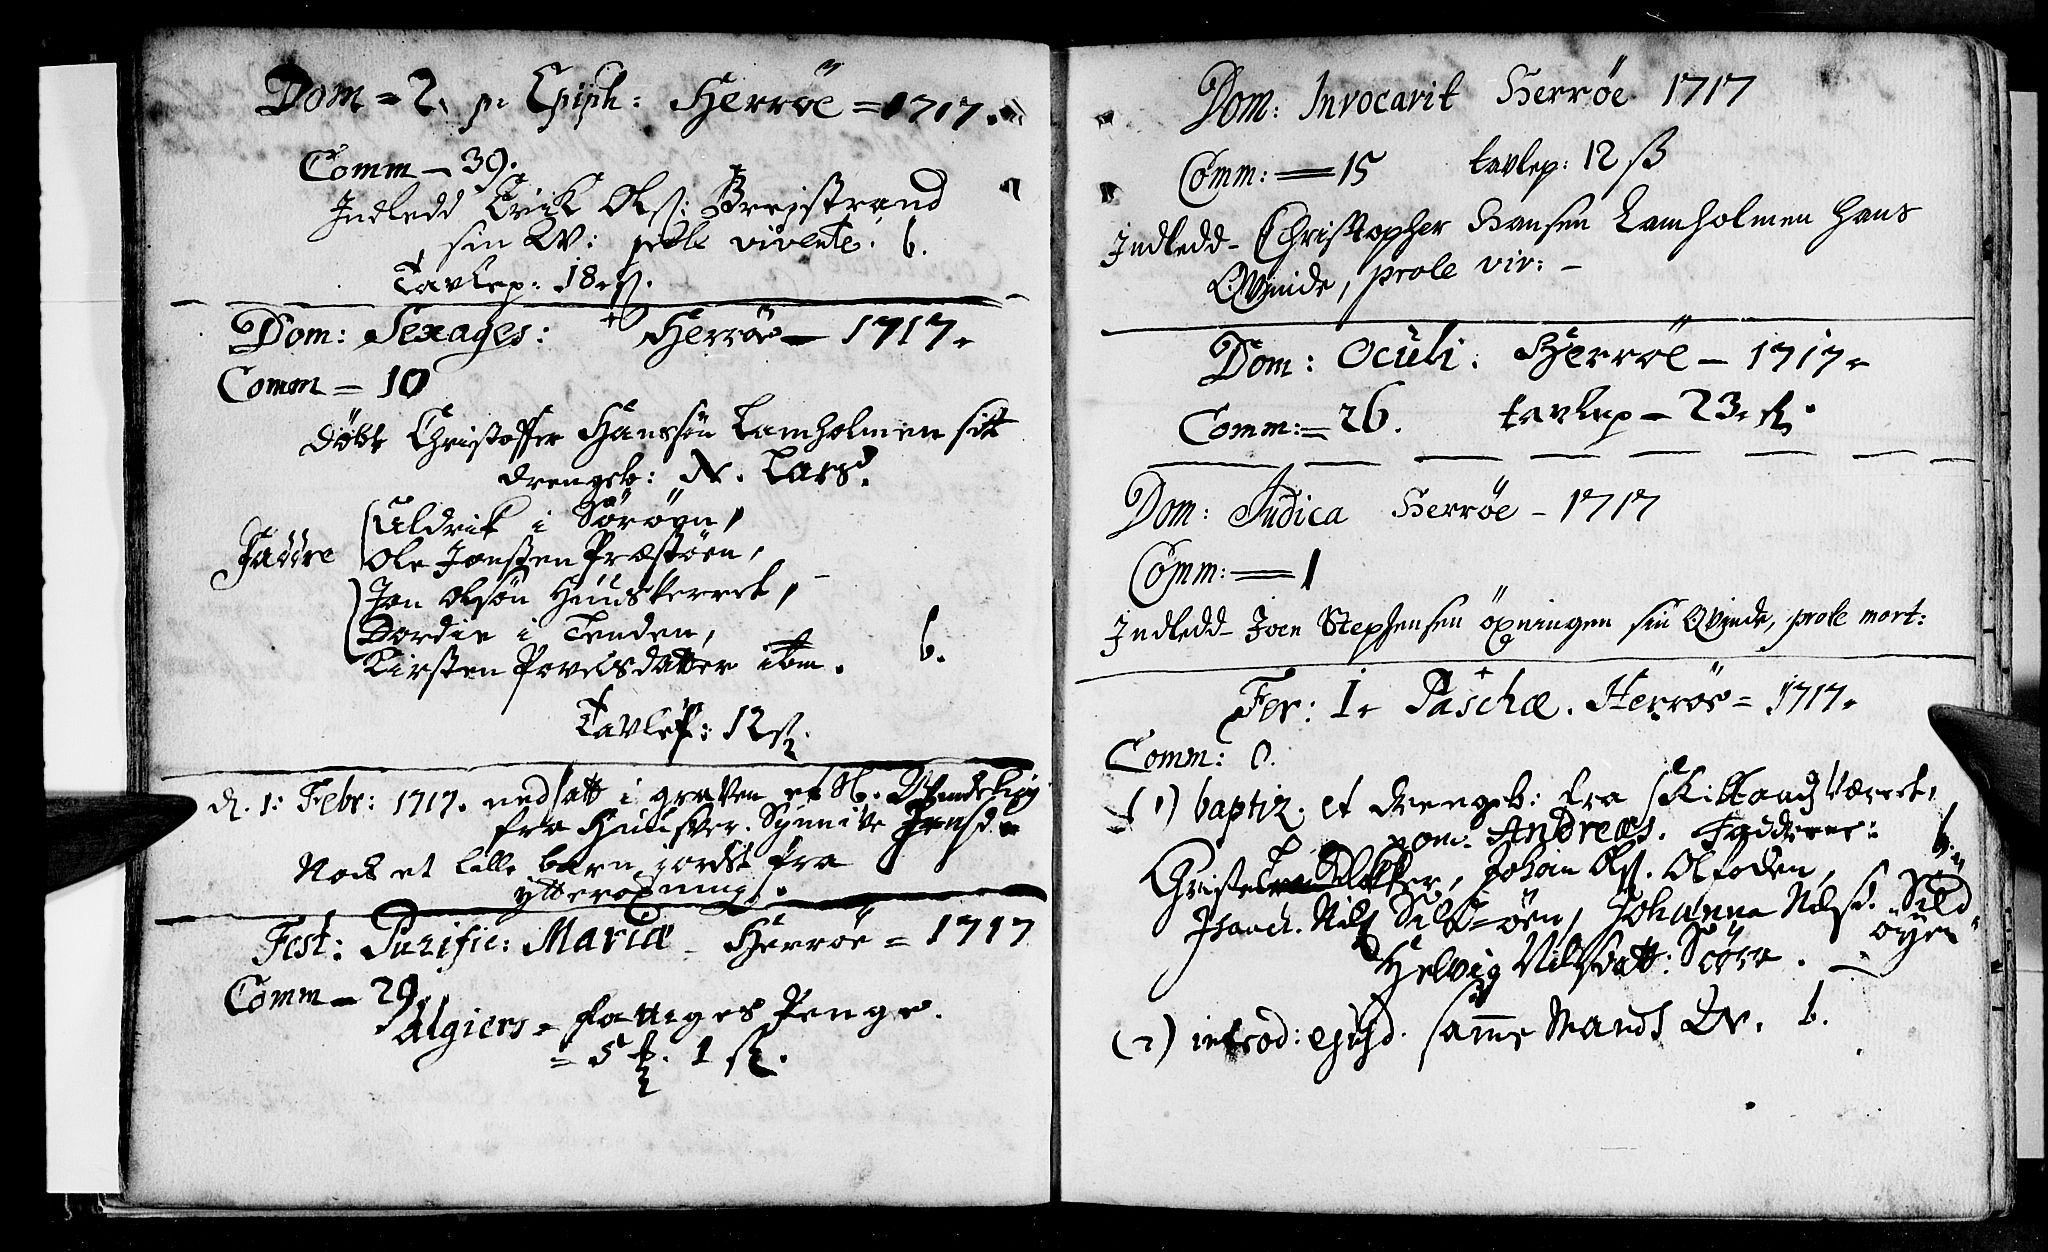 Dom = 2. p. Epiph: Herröe = 1717.
Comm – 39.
Indledd Erik Ols: Breistrand
sin Qv: prole vivente. b.
Tavlep: 18 ß.
Dom: Sexages: Herröe – 1717.
Comm = 10
döbt Christoffer Hanssön Lamholmen sit
drengeb: N. Lars.
Faddre
Uldrik i Söröen,
Ole Jonssen Præstöen,
Jon Olsön Huuskerret,
Dordie i Tenden,
Kirsten Povelsdatter ibm. b.
Tavlep: 12 ß.
d. 1: Febr: 1717. nedsatt i graven et
fra Huusker. Synnive Jensd.
Nock et lille barn jordet fra
ytteropnings.
Fest: Purific: Mariæ – Herröe = 1717
Comm – 29.
Algiers = fattiges Penge.
= 5 . 1 ß.
Dom: Invocavit Herröe 1717
Comm: = 15 tavlep: 12 ß
Indledd – Christopher Hansen Lamholmen hans
Qvinde, prole viv: –
Dom: Oculi. Herröe – 1717.
Comm: = 26. tavlep – 23 ß.
Dom: Judica Herröe – 1717
Comm: = 1
Indledd – Joen Stephensen öpningen sin Qvinde, prole mort:
Fer: 1. Paschæ. Herröe = 1717.
Comm: 0.
(1) baptiz. et drengeb: fra Skitbaadværet.
nom: Andreas. Fadderne: b.
Christe Klokker, Johan Ols. Olfoden,
Isaach. Nils Sildöen, Johanna Nilsd. Sild
öyen
Helvig Nilsdatt: Söre.
(2) introd: ejusd. samme Mands Qv. b.